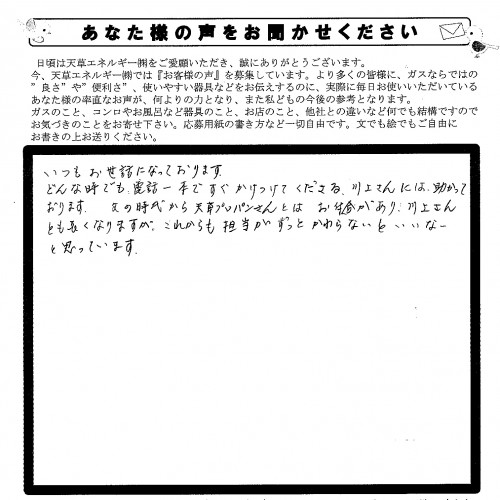 あなた様の声をお聞かせください
日頃は天草エネルギー㈱をご愛顧いただき、誠にありがとうございます。
今、天草エネルギー㈱では『お客様の声』を募集しています。より多くの皆様に、ガスならではの
”良さ”や”便利さ”、使いやすい器具などをお伝えするのに、実際に毎日お使いいただいている
あなた様の率直なお声が、何よりの力となり、また私どもの今後の参考となります。
ガスのこと、コンロやお風呂など器具のこと、お店のこと、他社との違いなど何でも結構ですので
お気づきのことをお寄せ下さい。応募用紙の書き方など一切自由です。文でも絵でもご自由に
お書きの上お送りください。
いつもお世話になっております。
どんな時でも、電話一本ですぐかけつけてくださる、川上さんには、助かって
おります。父の時代から天草プロパンさんとは お付合があり、川上さん
とも長くなりますが、これからも担当がずっとかわらないといいなー
と思っています。